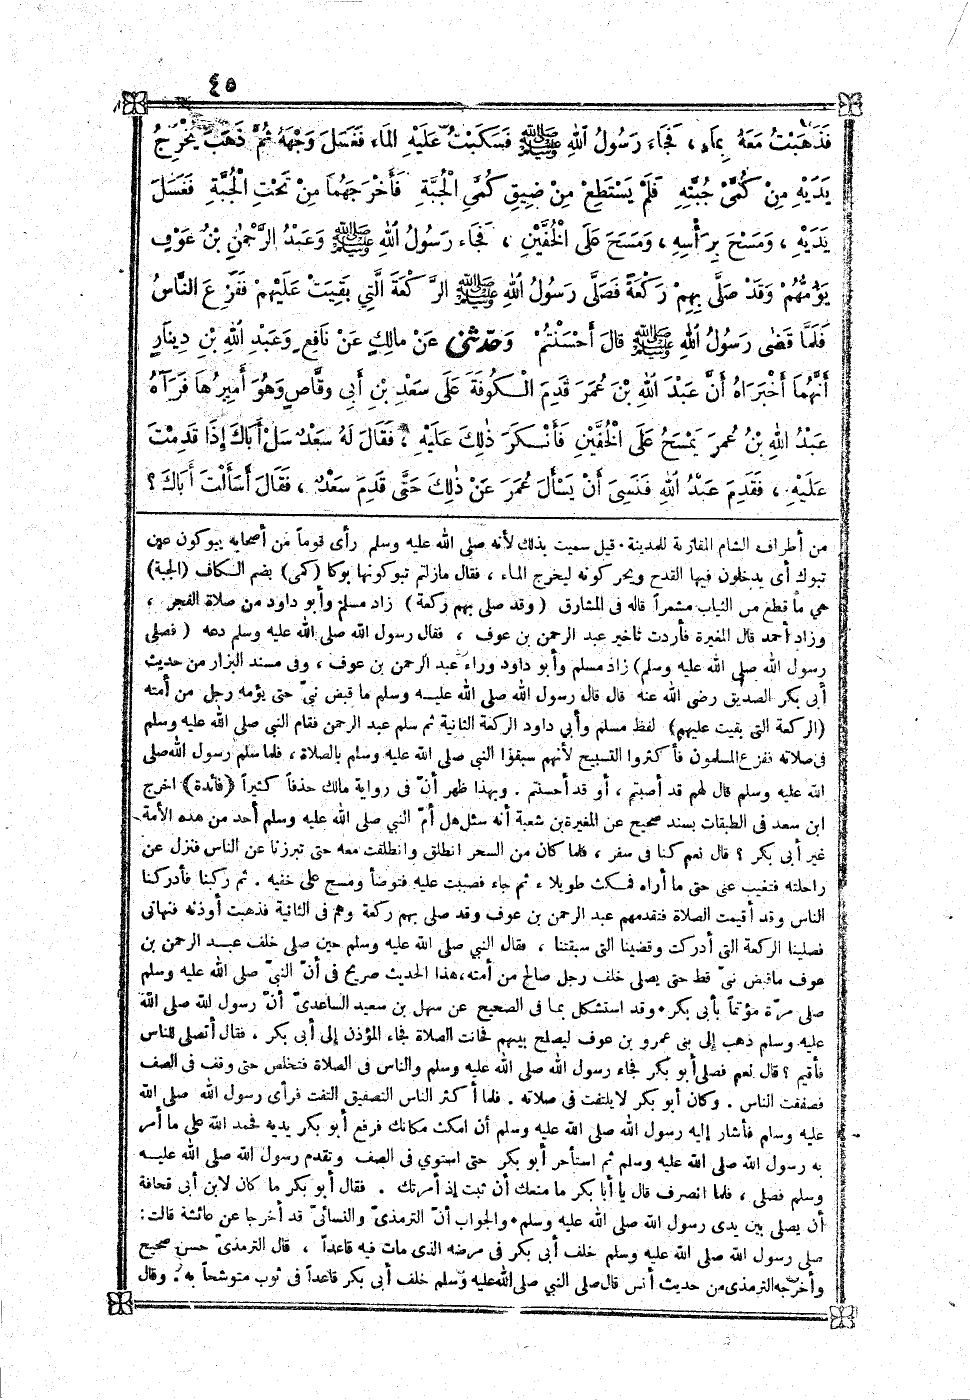 ٤٥
فَذَهَبْتُ مَعَهُ بِمَاءٍ ، فَجَاءَ رَسُولُ اللهِ ﷺ فَسَكَبْتُ عَلَيْهِ الْمَاءَ فَغَسَلَ وَجْهَهُ ثُمَّ ذَهَبَ يُخْرِجُ
يَدَيْهِ مِنْ كُمَّىْ جُبَّتِهِ فَلَمْ يَسْتَطِعْ مِنْ ضِيقِ كُمَّىِ الْجُبَّةِ فَأَخْرَجَهُمَا مِنْ تَحْتِ الْجُبَّةِ فَغَسَلَ
يَدَيْهِ ، وَمَسَحَ بِرَأْسِهِ ، وَمَسَحَ عَلَى الْخُفَّيْنِ ، فَجَاءَ رَسُولُ اللهِ ﷺ وَعَبْدُ الرَّحْمٰنِ بْنُ عَوْفٍ
يَؤُمُّهُمْ وَقَدْ صَلَّى بِهِمْ رَكْعَةً فَصَلَّى رَسُولُ اللهِ ﷺ الرَّكْعَةَ الَّتِي بَقِيَتْ عَلَيْهِمْ فَفَزِعَ النَّاسُ
فَلَمَّا قَضٰى رَسُولُ اللهِ ﷺ قالَ أَحْسَنْتُمْ وَحَدَّثَنِى عَنْ مالِكٍ عَنْ نَافِعٍ وَعَبْدِ اللهِ بْنِ دِينَارٍ
أَنَّهُمَا أَخْبَرَاهُ أَنَّ عَبْدَ اللهِ بْنَ عُمَرَ قَدِمَ الْكُوفَةَ عَلَى سَعْدِ بْنِ أَبِي وقَّاصٍ وَهُوَ أَمِيرُهَا فَرَآهُ
عَبْدُ اللهِ بْنُ عُمَرَ يَمْسَحُ عَلَى الْخُفَّيْنِ فَأَنْكَرَ ذٰلِكَ عَلَيْهِ ، فَقَالَ لَهُ سَعْدٌ سَلْ أَبَاكَ إِذَا قَدِمْتَ
عَلَيْهِ ، فَقَدِمَ عَبْدُ اللهِ فَنَسِىَ أَنْ يَسْأَلَ عُمَرَ عَنْ ذٰلِكَ حَتَّى قَدِمَ سَعْدٌ ، فَقَالَ أَسَأَلْتَ أَبَاكَ ؟
من أطراف الشام المقاربة للمدينة . قيل سميت بذلك لأنه صلى الله عليه وسلم رأى قوماً من أصحابه يبوكون عين
تبوك أى يدخلون فيها القدح ويحركونه ليخرج الماء ، فقال مازلتم تبوكونها بوكا (كمى) بضم الكاف (الجبة)
هي ما قطع من الثياب مشمراً قاله فى المشارق (وقد صلى بهم ركعة) زاد مسلم وأبو داود من صلاة الفجر ،
وزاد أحمد قال المغيرة فأردت تأخير عبد الرحمن بن عوف ، فقال رسول الله صلى الله عليه وسلم دعه (فصلى
رسول الله صلى الله عليه وسلم) زاد مسلم وأبو داود وراء عبد الرحمن بن عوف ، وفى مسند البزار من حديث
أبى بكر الصديق رضى الله عنه قال قال رسول الله صلى الله عليه وسلم ما قبض نبىّ حتى يؤمه رجل من أمته
(الركعة التى بقيت عليهم) لفظ مسلم وأبي داود الركعة الثانية ثم سلم عبد الرحمن فقام النبي صلى الله عليه وسلم
فى صلاته ففزع المسلمون فأكثروا التسبيح لأنهم سبقوا النبي صلى الله عليه وسلم بالصلاة ، فلما سلم رسول الله صلى
الله عليه وسلم قال لهم قد أصبتم ، أو قد أحسنتم . وبهذا ظهر أنّ فى رواية مالك حذفاً كثيراً (فائدة) اخرج
ابن سعد فى الطبقات بسند صحيح عن المغيرة بن شعبة أنه سئل هل أمّ النبي صلى الله عليه وسلم أحد من هذه الأمة
غير أبى بكر ؟ قال نعم كنا فى سفر ، فلما كان من السحر انطلق وانطلقت معه حتى تبرزنا عن الناس فنزل عن
راحلته فتغيب عنى حتى ما أراه فمكث طويلا ، ثم جاء فصببت عليه فتوضأ ومسح على خفيه . ثم ركبنا فأدركنا
الناس وقد أقيمت الصلاة فتقدمهم عبد الرحمن بن عوف وقد صلى بهم ركعة وهم فى الثانية فذهبت أوذنه فنهانى
فصلينا الركعة التى أدركت وقضينا التى سبقتنا ، فقال النبي صلى الله عليه وسلم حين صلى خلف عبد الرحمن بن
عوف ماقبض نبىّ قط حتى يصلى خلف رجل صالح من أمته، هذا الحديث صريح فى أنّ النبىّ صلى الله عليه وسلم
صلى مرّة مؤتماً بأبى بكر . وقد استشكل بما فى الصحيح عن سهل بن سعيد الساعدىّ أنّ رسول الله صلى الله
عليه وسلم ذهب إلى بنى عمرو بن عوف ليصلح بينهم فحانت الصلاة فجاء المؤذن إلى أبى بكر ، فقال أتصلى للناس
فأقيم ؟ قال نعم فصلى أبو بكر فجاء رسول الله صلى الله عليه وسلم والناس فى الصلاة فتخلص حتى وقف فى الصف
فصفقت الناس . وكان أبو بكر لايلتفت فى صلاته . فلما أكثر الناس التصفيق التفت فرأى رسول الله صلى الله
عليه وسلم فأشار إليه رسول الله صلى الله عليه وسلم أن امكث مكانك فرفع أبو بكر يديه فحمد الله على ما أمر
به رسول الله صلى الله عليه وسلم ثم استأخر أبو بكر حتى استوي فى الصف وتقدم رسول الله صلى الله عليه
وسلم فصلى ، فلما انصرف قال يا أبا بكر ما منعك أن تثبت إذ أمرتك . فقال أبو بكر ما كان لابن أبى قحافة
أن يصلى بين يدى رسول الله صلى الله عليه وسلم . والجواب أنّ الترمذىّ والنسائىّ قد أخرجا عن عائشة قالت :
صلى رسول الله صلى الله عليه وسلم خلف أبى بكر فى مرضه الذى مات فيه قاعداً ، قال الترمذىّ حسن صحيح
وأخرجه الترمذى من حديث أنس قال صلى النبي صلى الله عليه وسلم خلف أبى بكر قاعداً فى ثوب متوشحاً به . وقال